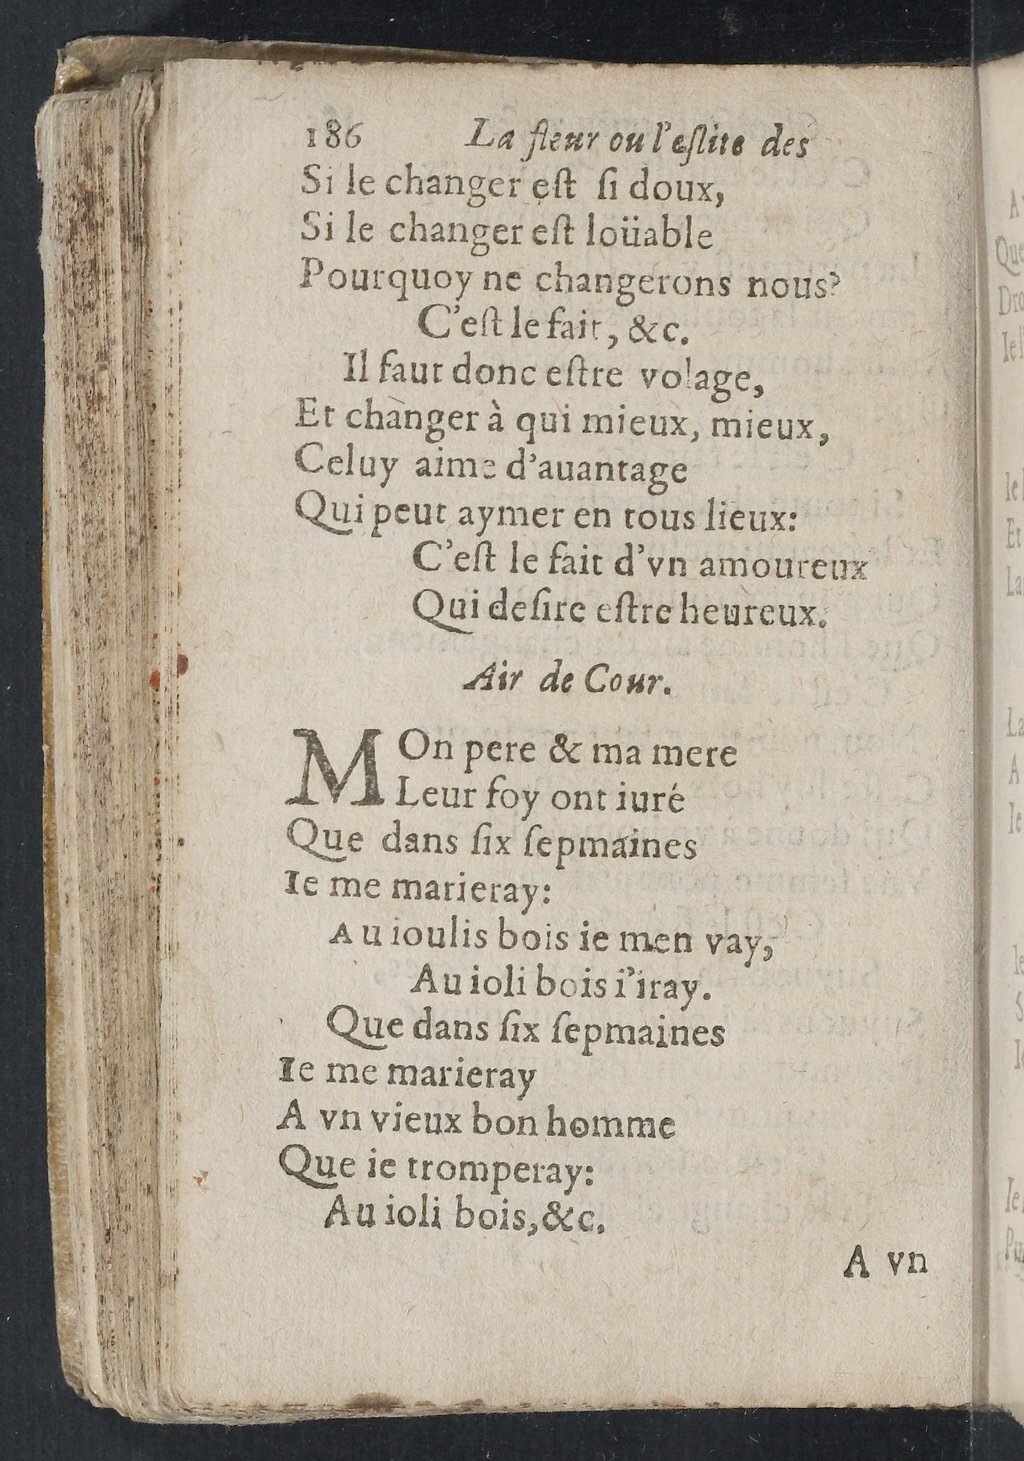 186 La fleur ou l'eslite des
Si le changer est si doux,
Si le changer est loüable
Pourquoy ne changerons nous?
C'est le fait, &c.
Il faut donc estre volage,
Et changer à qui mieux, mieux,
Celuy aime d'auantage
Qui peut aymer en tous lieux:
C'est le fait d'vn amoureux
Qui desire estre heureux.
Air de Cour.
MOn pere & ma mere
Leur foy ont iuré
Que dans six sepmaines
Ie me marieray:
Au ioulis bois ie men vay,
Au ioli bois i'iray.
Que dans six sepmaines
Ie me marieray
A vn vieux bon homme
Que ie tromperay:
Au ioli bois, &c.
A vn